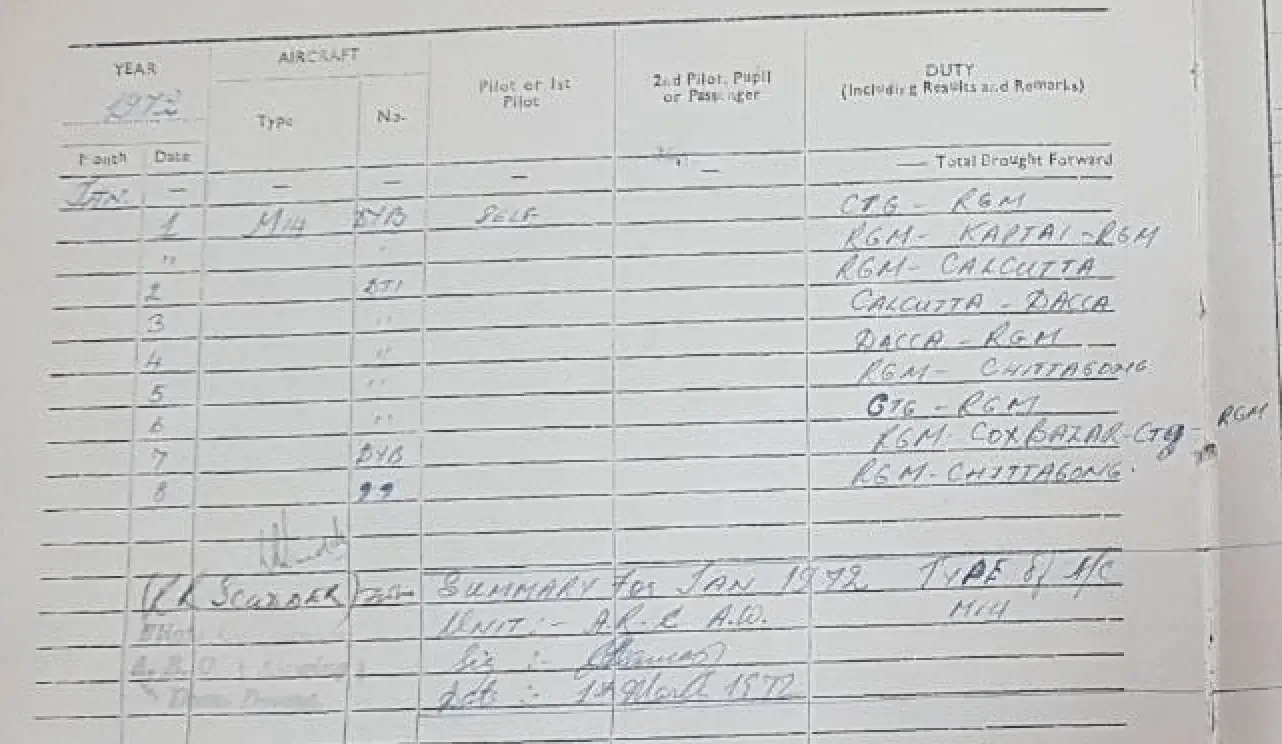 YEAR AIRCRAFT Pilot or 1st Pilot 2nd Pilot, Pupil or Passenger DUTY (Including Results and Remarks)
1972 Type No.
Month Date — Total Brought Forward
JAN. — — — — —
1 M14 SELF CTG - RGM
" " RGM - KAPTAI - RGM
RGM - CALCUTTA
2 CALCUTTA - DACCA
3 " DACCA - RGM
4 " RGM - CHITTAGONG
5 " CTG - RGM
6 " RGM - COXBAZAR - CTG - RGM
7 RGM - CHITTAGONG.
8 "
SUMMARY for JAN 1972 TYPE of A/C
UNIT :- A.R.C A.W. M14
Sig :-
Date :- 1st March 1972